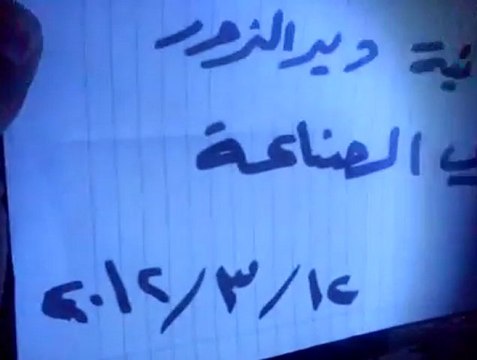 نية ديرالزور
ي الصناعة
١٢/٣/٢٠١٢